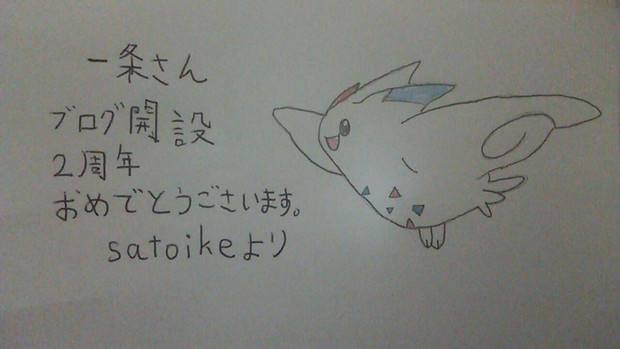 一条さん
ブログ開設
2周年
おめでとうございます。
satoikeより